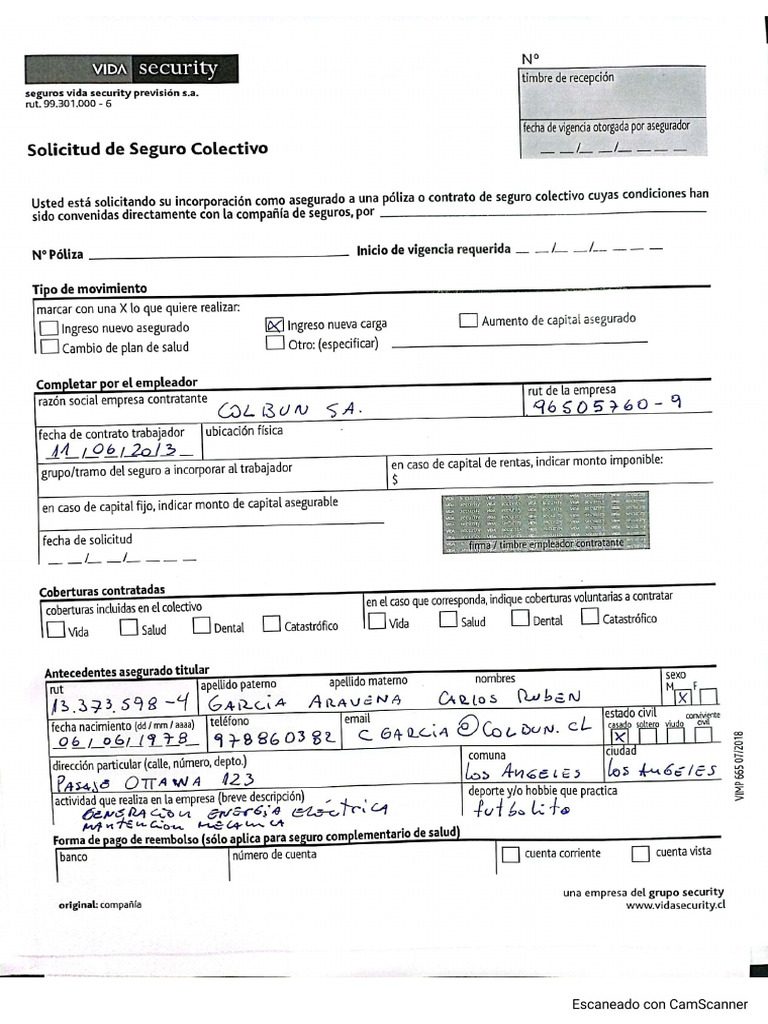 VIDA security
seguros vida security previsión s.a.
rut. 99.301.000 - 6
Nº
timbre de recepción
fecha de vigencia otorgada por asegurador
_ _/_ _/_ _ _ _
Solicitud de Seguro Colectivo
Usted está solicitando su incorporación como asegurado a una póliza o contrato de seguro colectivo cuyas condiciones han
sido convenidas directamente con la compañía de seguros, por
Nº Póliza Inicio de vigencia requerida _ _/_ _/_ _ _ _
Tipo de movimiento
marcar con una X lo que quiere realizar:
Ingreso nuevo asegurado X Ingreso nueva carga Aumento de capital asegurado
Cambio de plan de salud Otro: (especificar)
Completar por el empleador
razón social empresa contratante rut de la empresa
COLBUN SA. 96505760-9
fecha de contrato trabajador ubicación física
11/06/2013
grupo/tramo del seguro a incorporar al trabajador en caso de capital de rentas, indicar monto imponible:
$
en caso de capital fijo, indicar monto de capital asegurable
fecha de solicitud
_ _/_ _/_ _ _ _
firma / timbre empleador contratante
Coberturas contratadas
coberturas incluidas en el colectivo en el caso que corresponda, indique coberturas voluntarias a contratar
Vida Salud Dental Catastrófico Vida Salud Dental Catastrófico
Antecedentes asegurado titular
rut apellido paterno apellido materno nombres sexo
M F
13.373.598-4 GARCIA ARAVENA CARLOS RUBEN X
fecha nacimiento (dd / mm / aaaa) teléfono email estado civil
casado soltero viudo conviviente civil
06/06/1978 978860382 CGARCIA@COLDUN.CL X
dirección particular (calle, número, depto.) comuna ciudad
PASAJE OTTAWA 123 LOS ANGELES LOS ANGELES
actividad que realiza en la empresa (breve descripción) deporte y/o hobbie que practica
GENERACION ENERGIA ELÉCTRICA futbolito
MANTENCION MECANICA
Forma de pago de reembolso (sólo aplica para seguro complementario de salud)
banco número de cuenta cuenta corriente cuenta vista
una empresa del grupo security
original: compañía www.vidasecurity.cl
VIIMP 665 07/2018
Escaneado con CamScanner